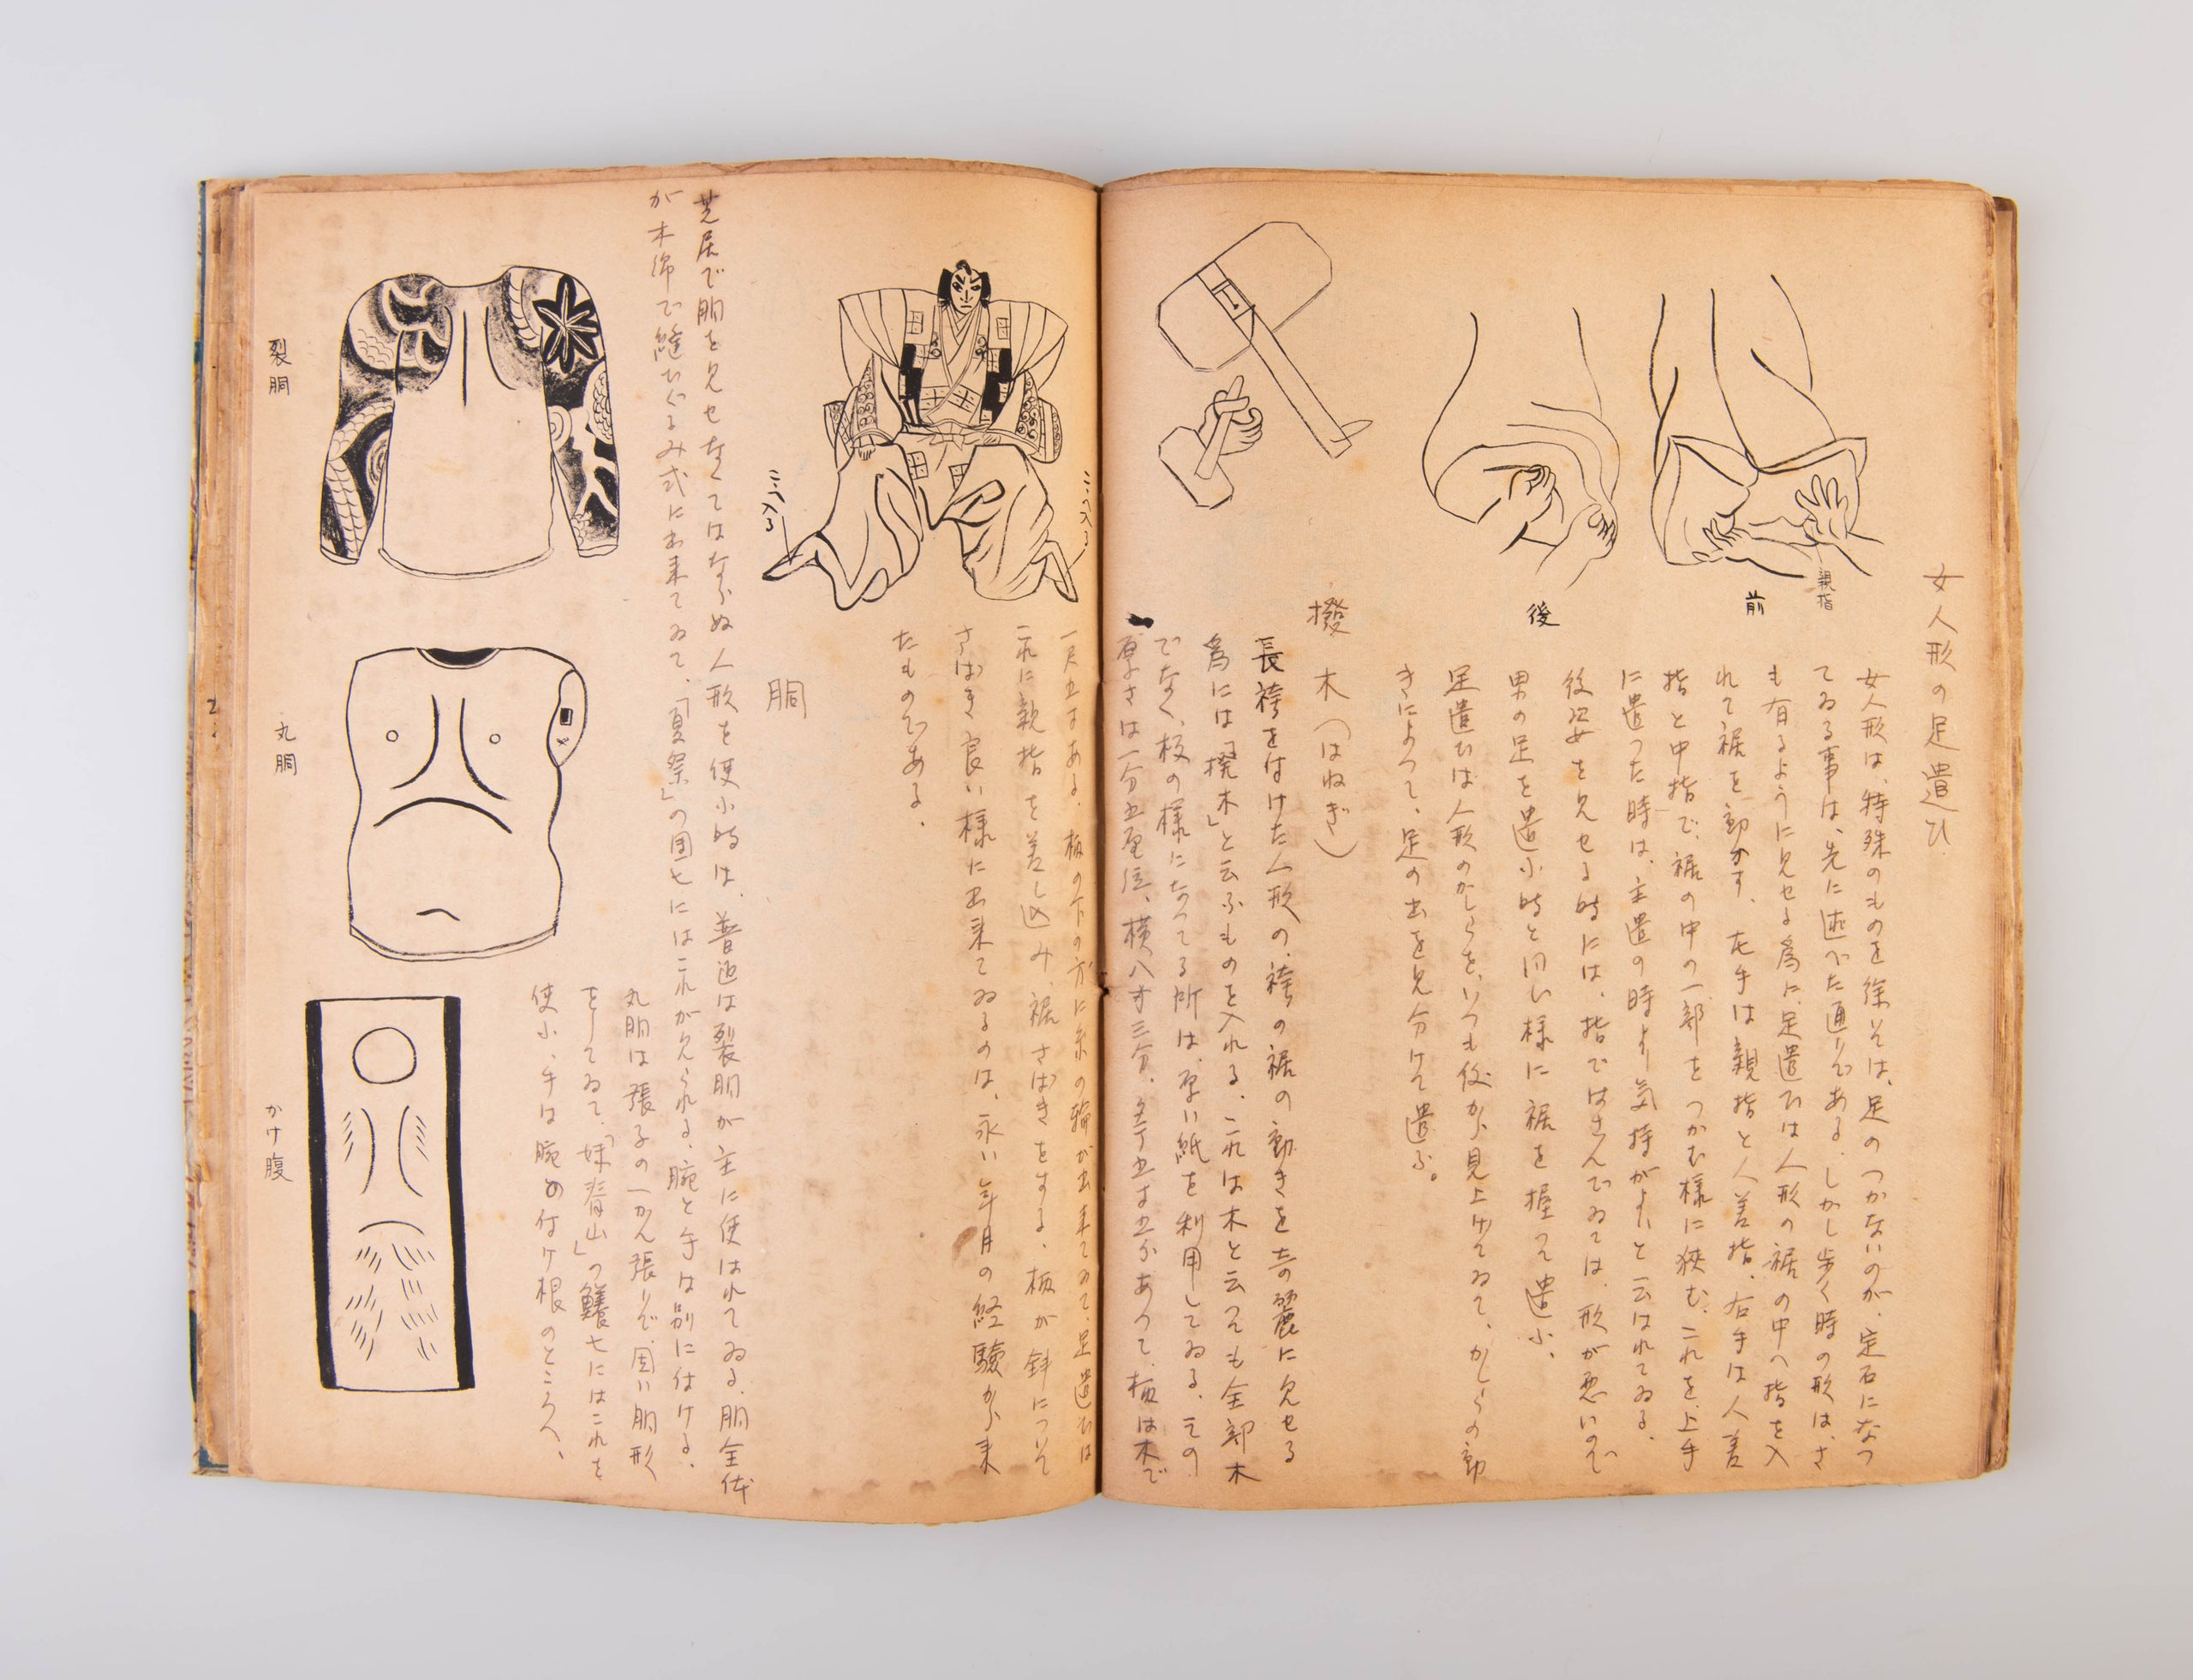 女人形の足遣ひ
女人形は、特殊のものを徐そは、足のつかないのが、定石になつ
てゐる事は、先に述べた通りである。しかし歩く時の形は、さ
も有るように見せる為に、足遣ひは人形の裾の中へ指を入
れて裾を動かす、左手は親指と人差指、右手は人差
指と中指で、裾の中の一部をつかむ様に狭む、これを上手
に遣つた時は、主遣の時より気持がよいと云はれてゐる。
後姿を見せる時には、指ではさんでゐては、形が悪いので
男の足を遣ふ時と同い様に裾を握つて遣ふ、
足遣ひは人形のかしらを、いつも後から見上げてゐて、かしらの動
きによつて、足の出を見分けて遣ふ。
前
親指
後
撥木(はねぎ)
長袴をはけた人形の、袴の裾の動きを奇麗に見せる
為には「撥木」と云ふものを入れる、これは木と云つても全部木
でなく、板の様になつてる所は、厚い紙を利用してゐる、その
厚さは一分五厘位、横八寸三分、
あつて、板は木で
一尺五寸ある、板の下の方に糸の輪が出来てゐて、足遣ひは
これに親指を差し込み、裾さばきをする、板が斜につゐて
さばき良い様に出来てゐるのは、永い年月の経驗から来
たものである、
こゝへ入る
こゝへ入る
胴
芝居で胴を見せなくてはならぬ人形を使ふ時は、普通は裂胴が主に使はれてゐる、胴全体
が木綿で縫ひぐるみ式に出来てゐて、「夏祭」の団七にはこれが見られる、腕と手は別につける、
丸胴は張子の一かん張りで、固い胴形
をしてゐて、「妹脊山」の鱶七にはこれを
使ふ、手は腕の付ケ根のところへ、
裂胴
丸胴
かけ腹